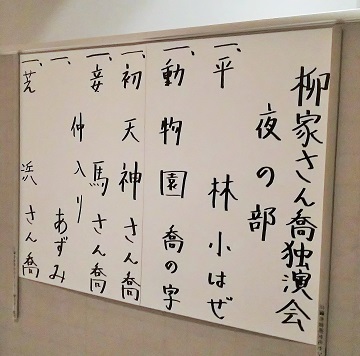 柳家さん喬独演会
夜の部
一、平林 小はぜ
一、動物園 喬の字
一、初天神 さん喬
一、妾馬 さん喬
仲入り
一、 あずみ
一、芝浜 さん喬